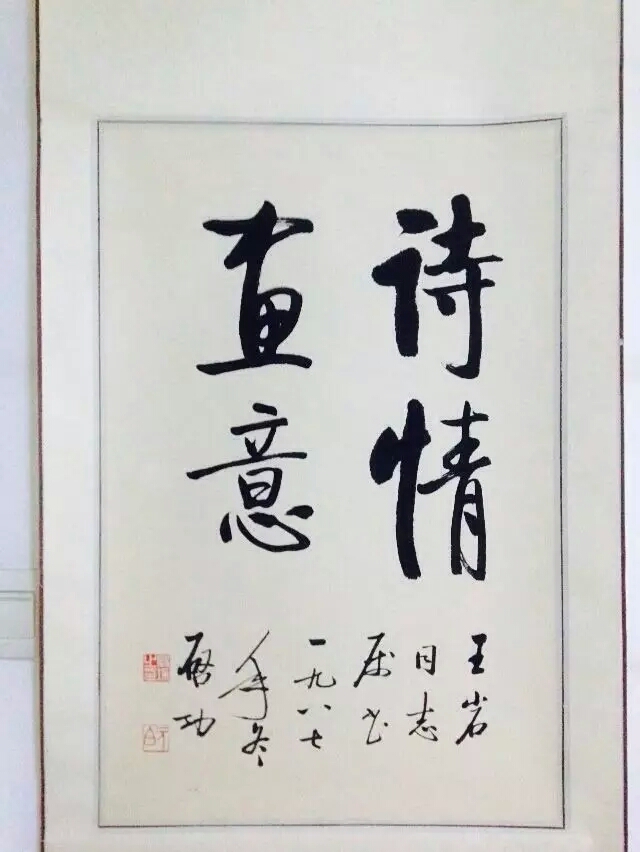 诗情
画意
王岩
同志
属书
一九八七
年冬
启功